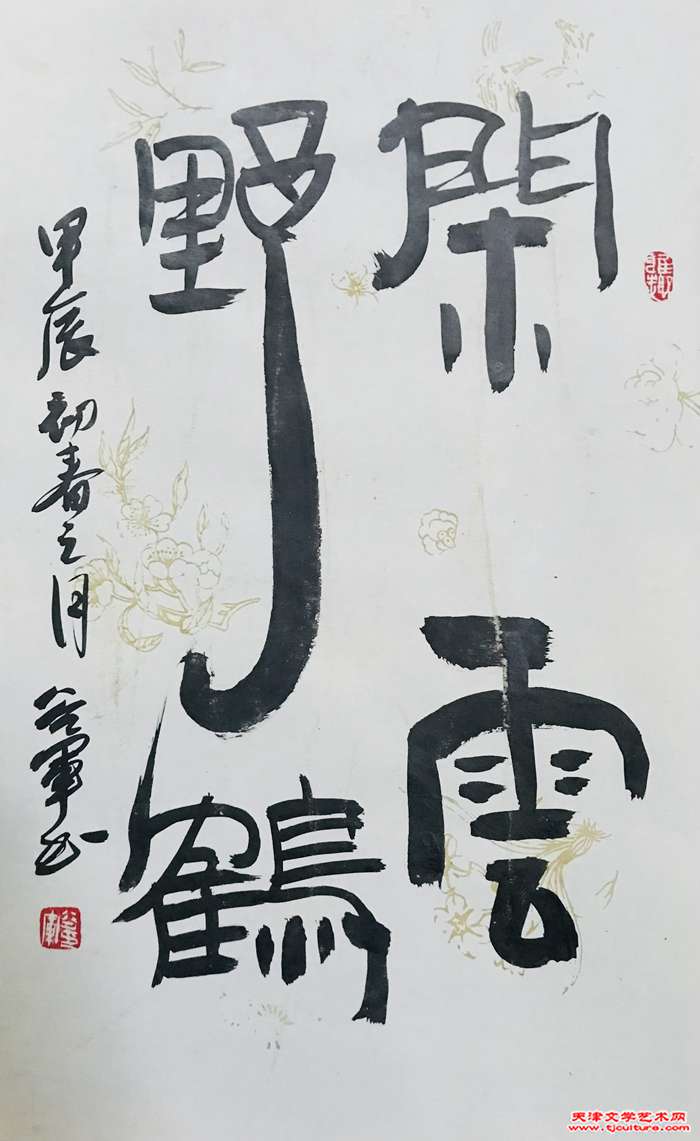 閑雲
野鶴
甲辰初春之月 谷軍书
天津文学艺术网
www.tjculture.com